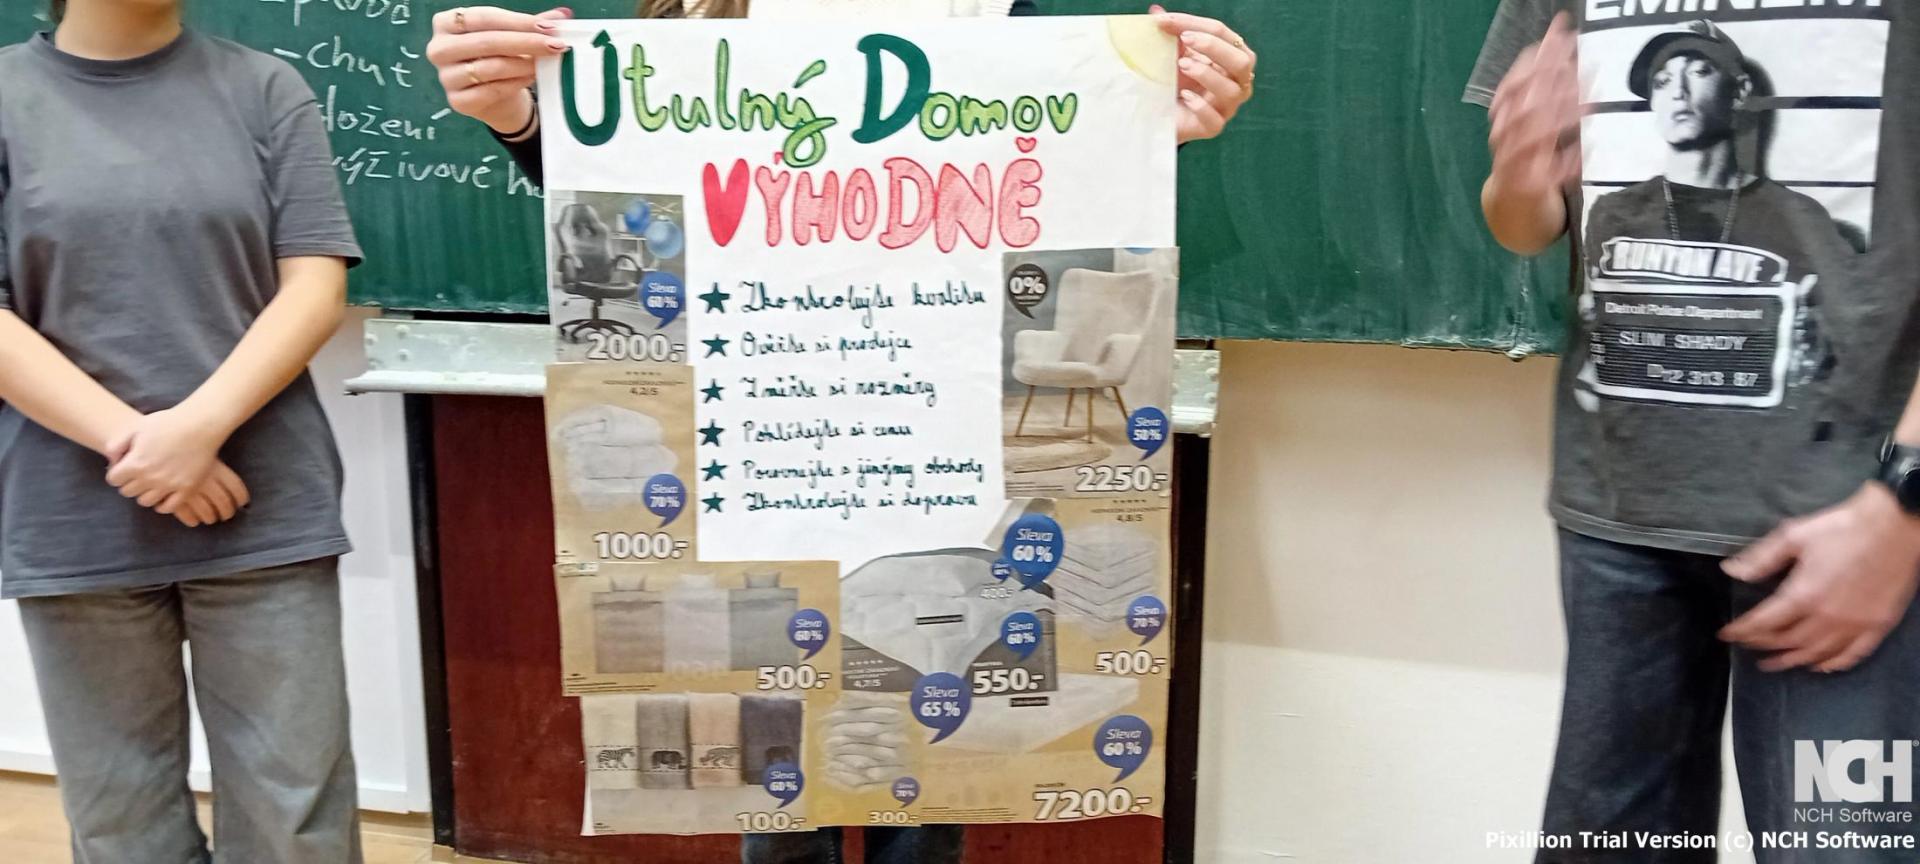 - chuť
složení
výživové h
Útulný Domov
VÝHODNĚ
★ Zkontrolujte kvalitu
★ Ověřte si prodejce
★ Změřte si rozměry
★ Pohlídejte si cenu
★ Porovnejte s jinými obchody
★ Zkontrolujte si dopravu
Sleva
60%
2000.-
0%
Sleva
50%
2250.-
4,2/5
Sleva
70%
1000.-
Sleva
60%
400.-
4,8/5
Sleva
70%
500.-
Sleva
60%
500.-
4,7/5
Sleva
60%
550.-
Sleva
65%
Sleva
60%
7200.-
Sleva
60%
100.-
Sleva
70%
300.-
EMINEM
RUNYON AVE
Detroit Police Department
SLIM SHADY
D12 313 87
NCH
NCH Software
Pixillion Trial Version (c) NCH Software